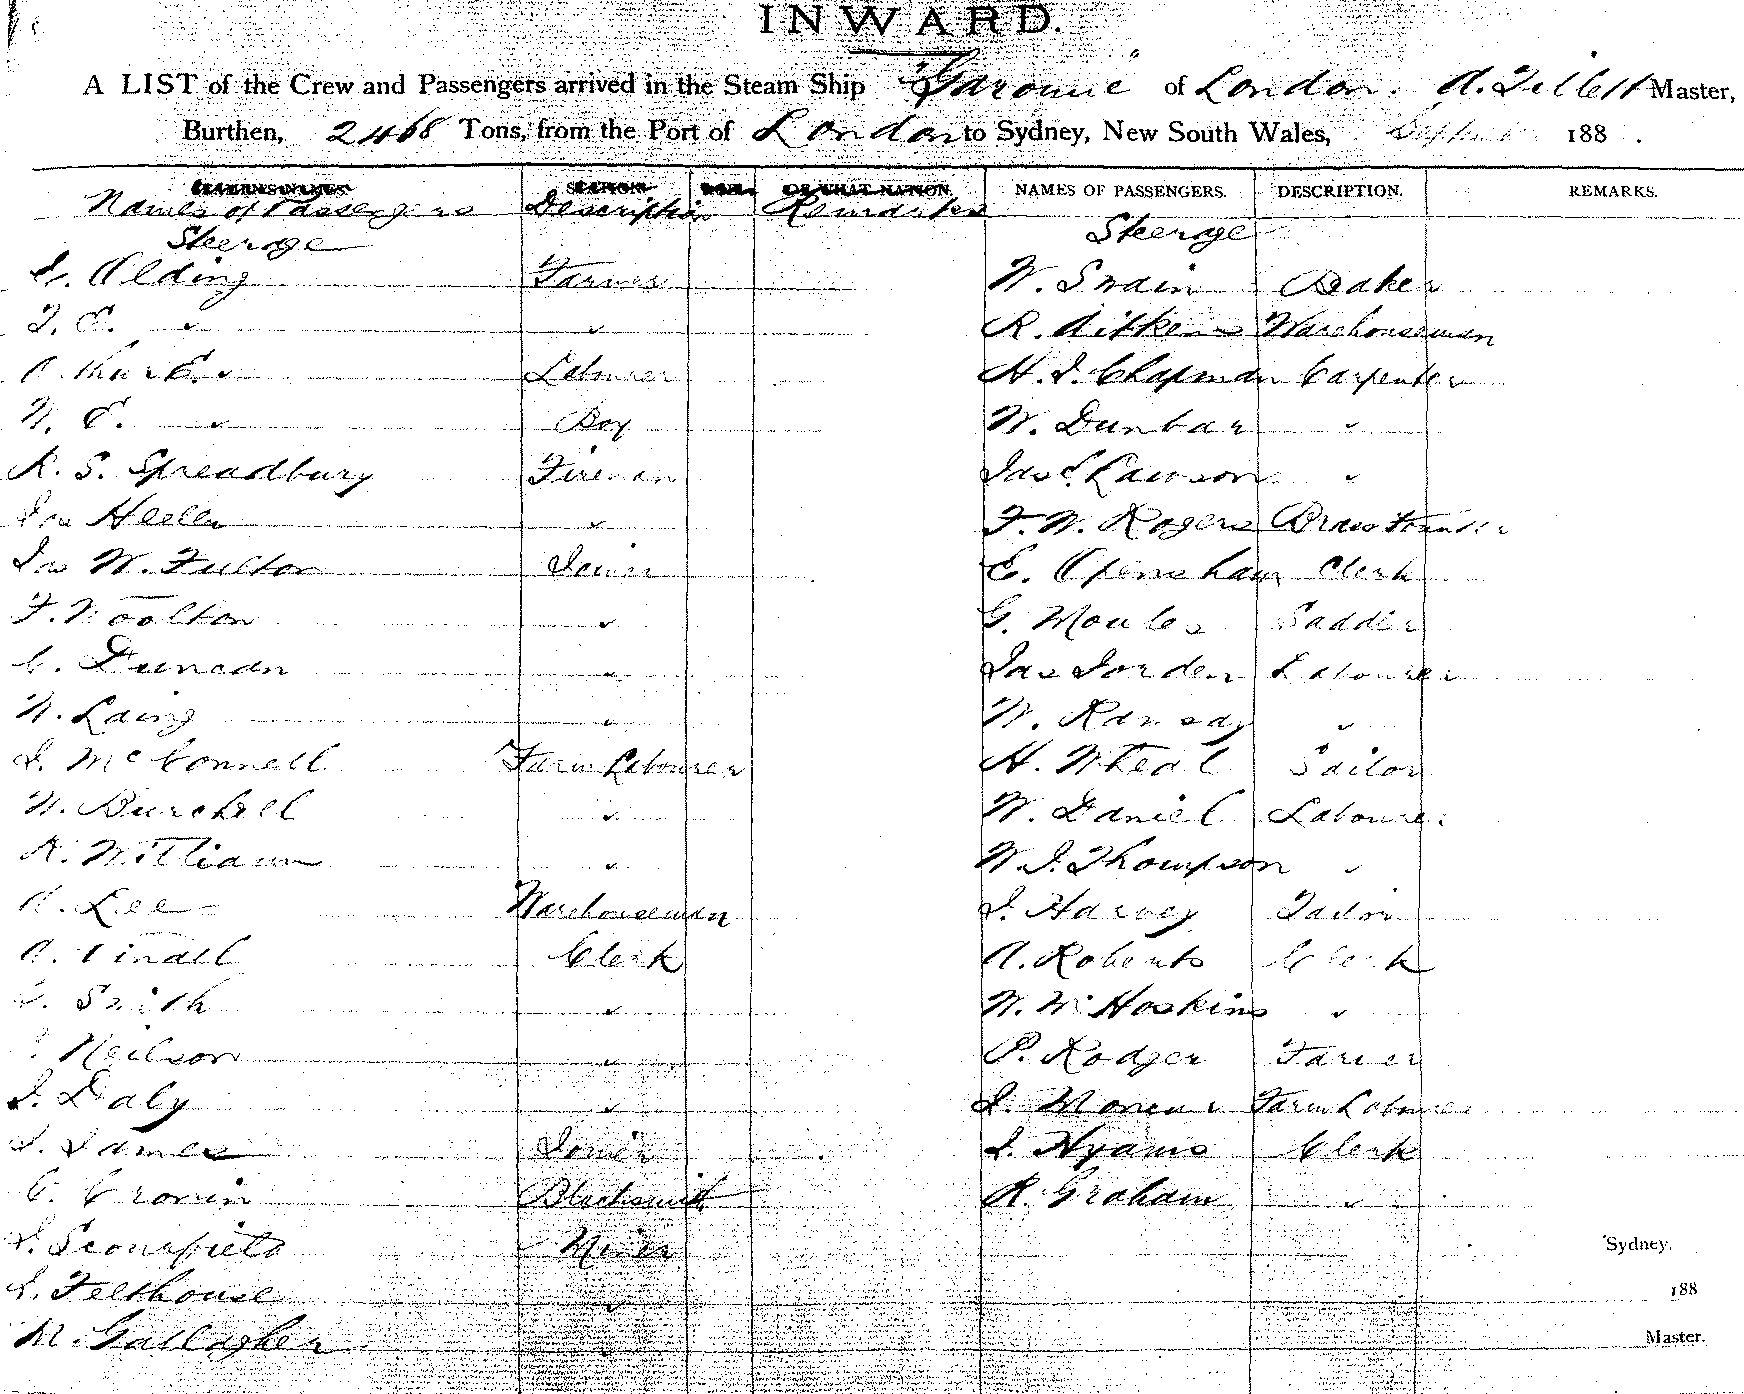 INWARD.
A LIST of the Crew and Passengers arrived in the Steam Ship "Garonne" of London. A. Tillett Master,
Burthen, 2468 Tons, from the Port of London to Sydney, New South Wales, 188 .
NAMES OF PASSENGERS. DESCRIPTION. REMARKS.
Names of Passengers Description Remarks
Steerage Steerage
Olding Farmer W. Swain Baker
T. E. " " R. Aitken Warehouseman
Arthur E. " Labourer H. J. Chapman Carpenter
W. E. " Boy W. Dunbar "
R. S. Spreadbury Fireman Jas. Lawson "
" F. W. Rogers Brass Founder
Jas W. Fulton Joiner E. Openshaw Clerk
F. Woolton " G. Moules Saddler
C. Duncan " Jas Jorden Labourer
W. Laing " W. Ramsay "
J. McConnell Farm Labourer H. Wheal Sailor
W. Burchell " W. Daniel Labourer
R. William " W. J. Thompson "
A. Lee Warehouseman J. Harvey Tailor
A. Tindell Clerk A. Roberts Clerk
Smith " W. W. Hoskins "
Neilson " P. Rodger Farmer
J. Daly " J. Farm Labourer
J. James Joiner J. Hyams Clerk
C. Cronin Blacksmith R. Graham "
J. Miner Sydney.
J. Felthouse " 188
M. Gallagher Master.